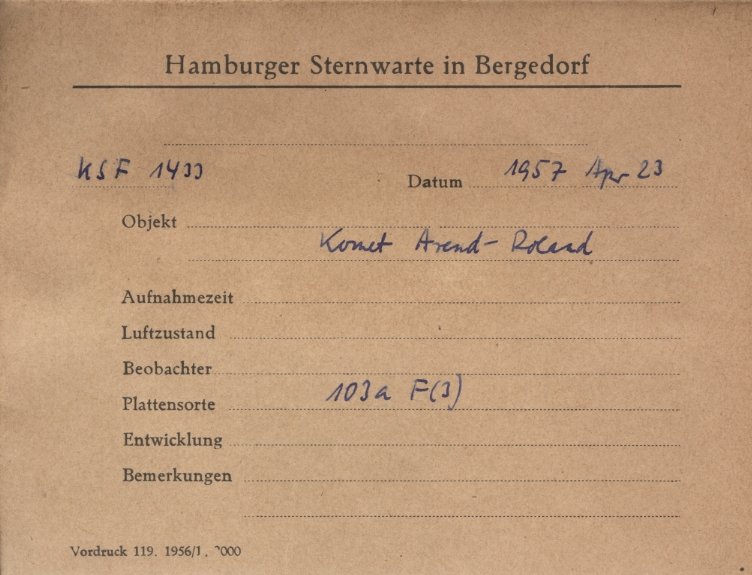 Hamburger Sternwarte in Bergedorf
KSF 1433
Datum 1957 Apr 23
Objekt
Komet Arend-Roland
Aufnahmezeit
Luftzustand
Beobachter
Plattensorte 103a F(3)
Entwicklung
Bemerkungen
Vordruck 119. 1956/1. 2000